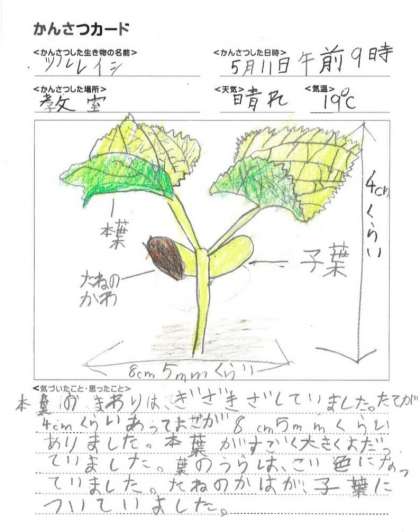 かんさつカード
<かんさつした生き物の名前>
ツルレイシ
<かんさつした日時>
5月11日午前9時
<かんさつした場所>
教室
<天気>
晴れ
<気温>
19℃
本葉
たねの
かわ
子葉
4cmくらい
8cm5mmくらい
<気づいたこと・思ったこと>
本葉のまわりは、ぎざぎざしていました。たてが
4cmくらいあってよこが8cm5mmくらい
ありました。本葉がすごく大きくなっ
ていました。葉のうらは、こい色になっ
ていました。たねのかはが、子葉に
ついていました。